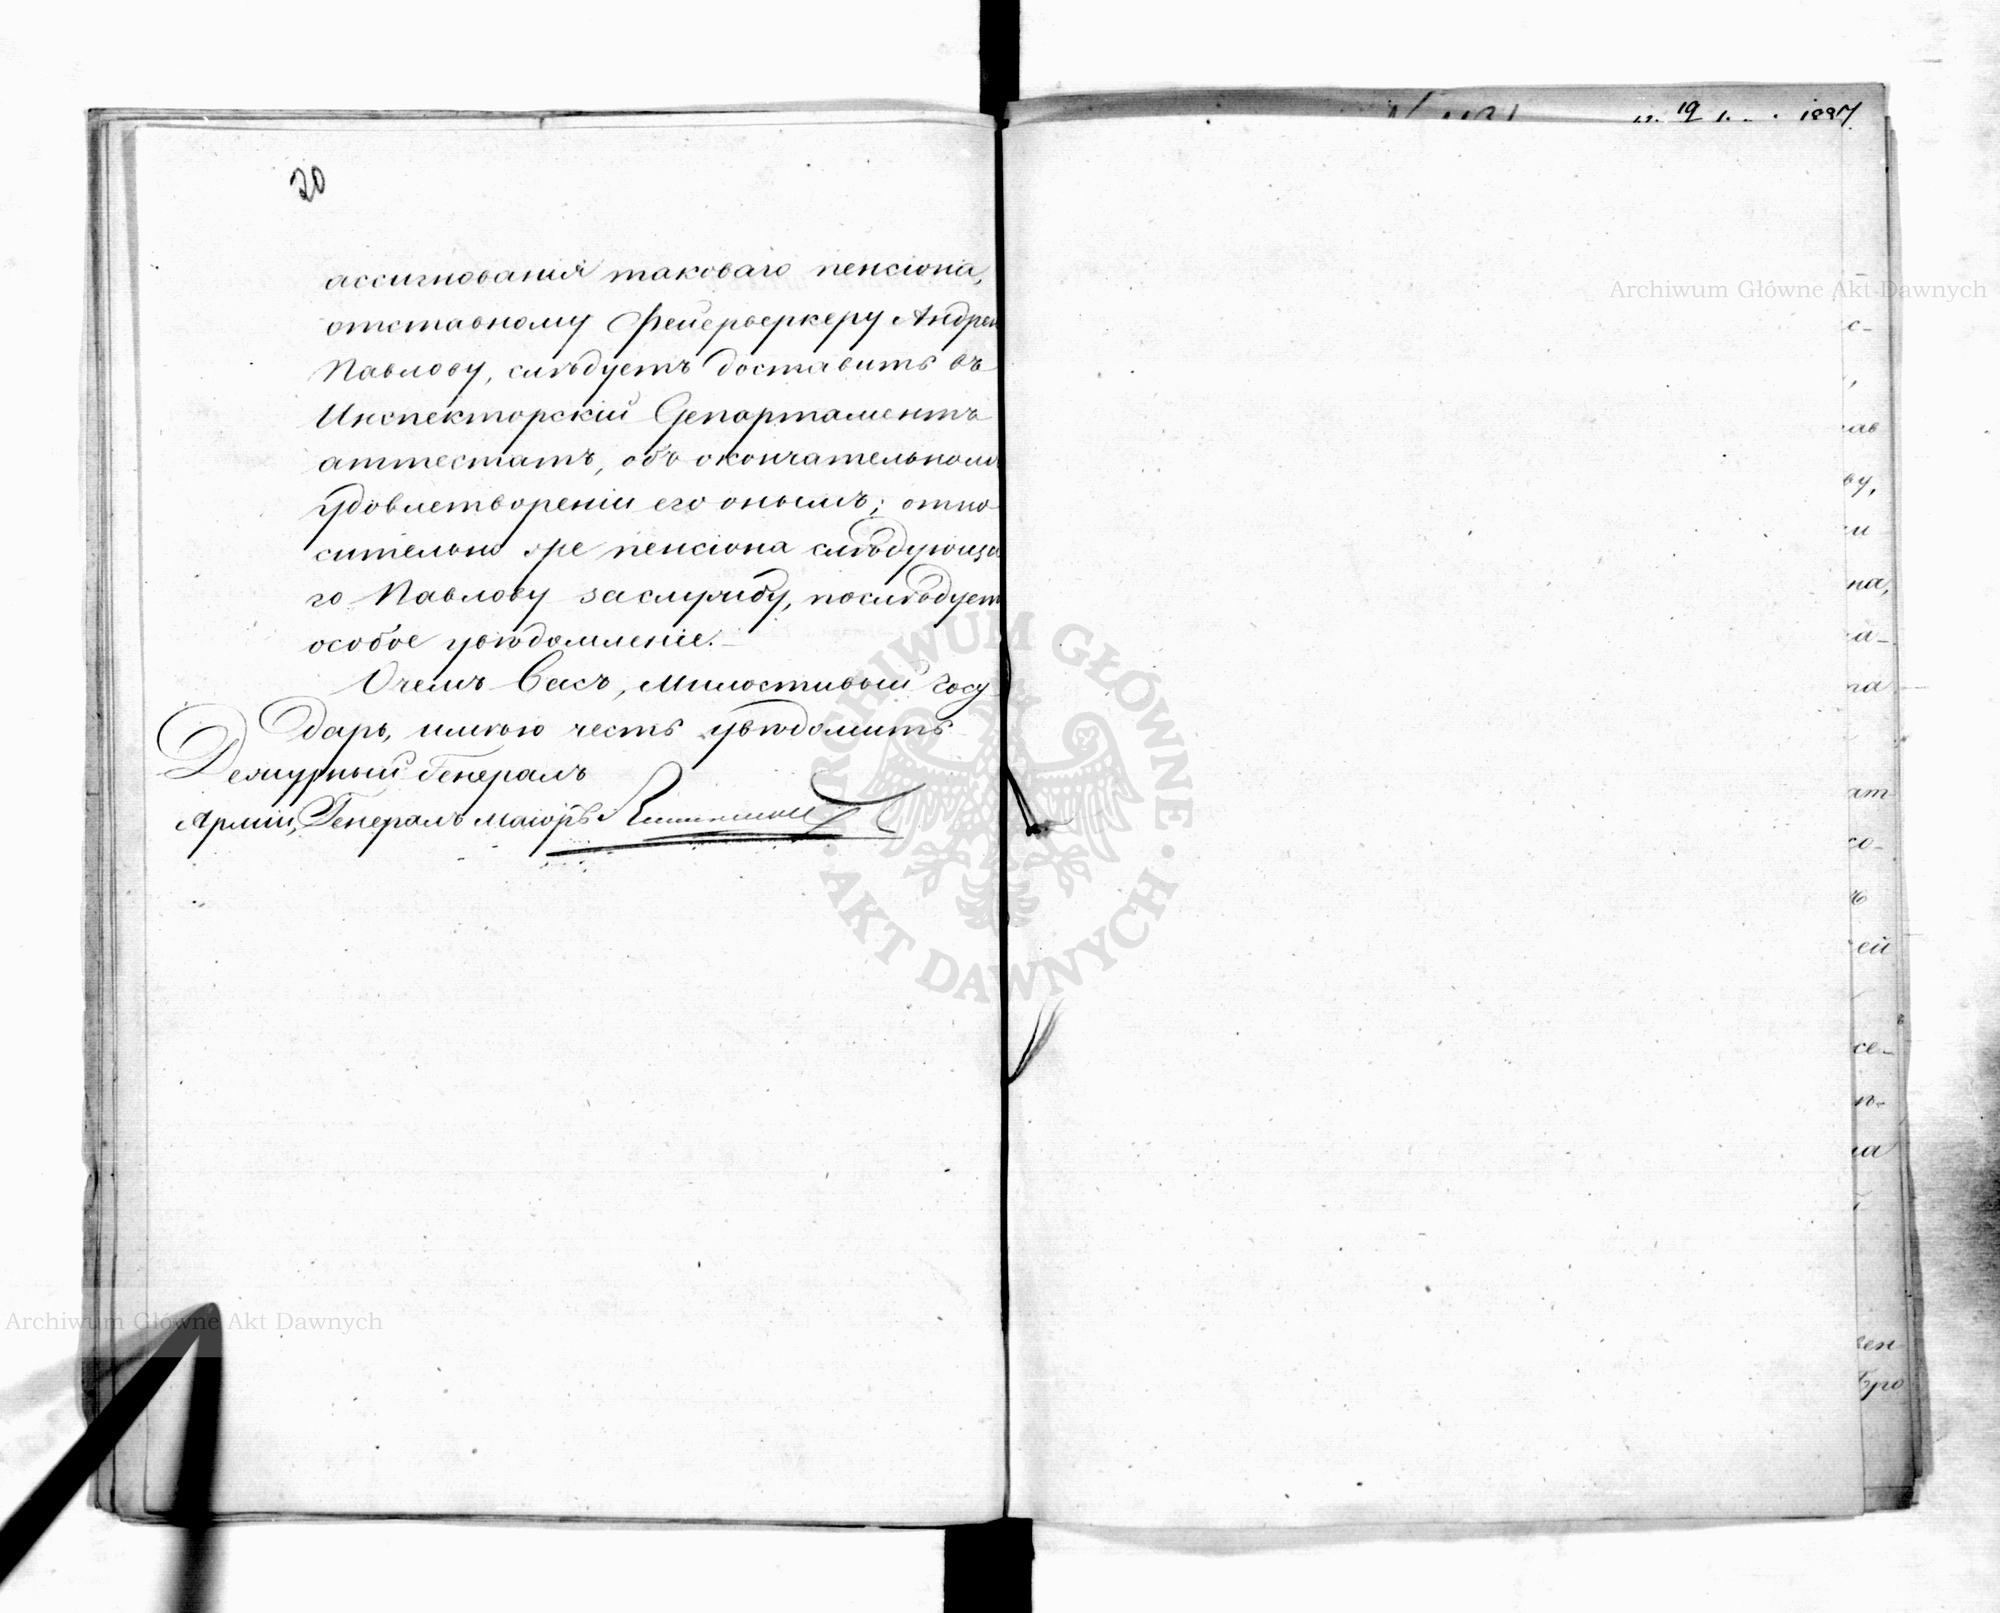 20
ассигнованія таковаго пенсіона,
отставному Фейерверкеру Андрею
Павлову, слѣдуетъ доставить въ
Инспекторскій Департаментъ
аттестатъ, объ окончательномъ
удовлетвореніи его онымъ; отно
сительно же пенсіона слѣдующа
го Павлову заслужбу, послѣдуетъ
особое увѣдомленіе.-
Очемъ Васъ, Милостивый Госу
дарь, имѣю честь увѣдомить
Дежурный Генералъ
Арміи, Генералъ Маіоръ
19 1837
с-
ав
ву,
и
на,
а-
га
ат
со-
ей
се-
п-
ла
вен
бро
ARCHIWUM GŁÓWNE
AKT DAWNYCH
Archiwum Główne Akt Dawnych
Archiwum Główne Akt Dawnych